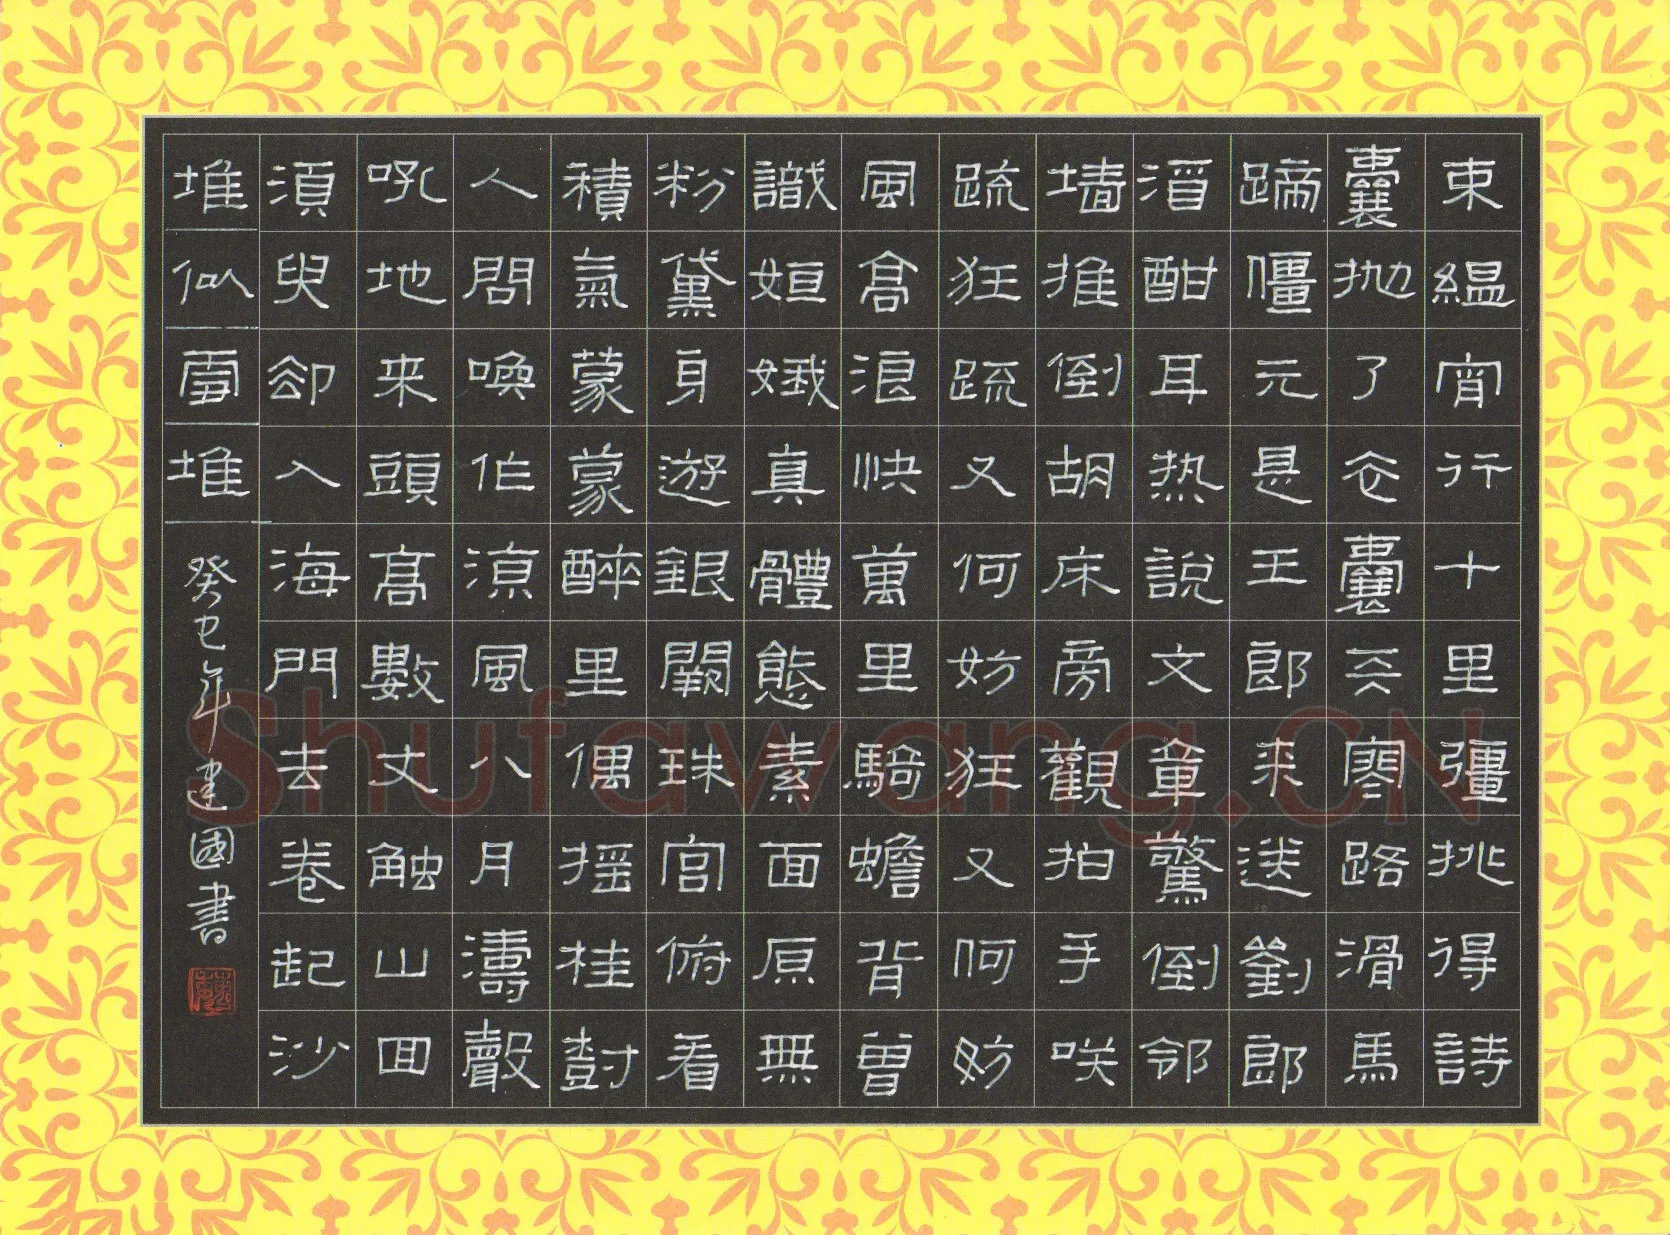 束縕宵行十里彊挑得詩
囊抛了衣囊天寒路滑馬
蹄僵元是王郎来送劉郎
酒酣耳热說文章驚倒邻
墙推倒胡床旁觀拍手咲
疏狂疏又何妨狂又何妨
風高浪快萬里騎蟾背曾
識姮娥真體態素面原無
粉黛身遊銀闕珠宫俯看
積氣蒙蒙醉里偶摇桂樹
人間喚作凉風八月濤聲
吼地来頭高數丈触山回
須臾卻入海門去卷起沙
堆似雪堆
癸巳年建國書
Shufawang.CN